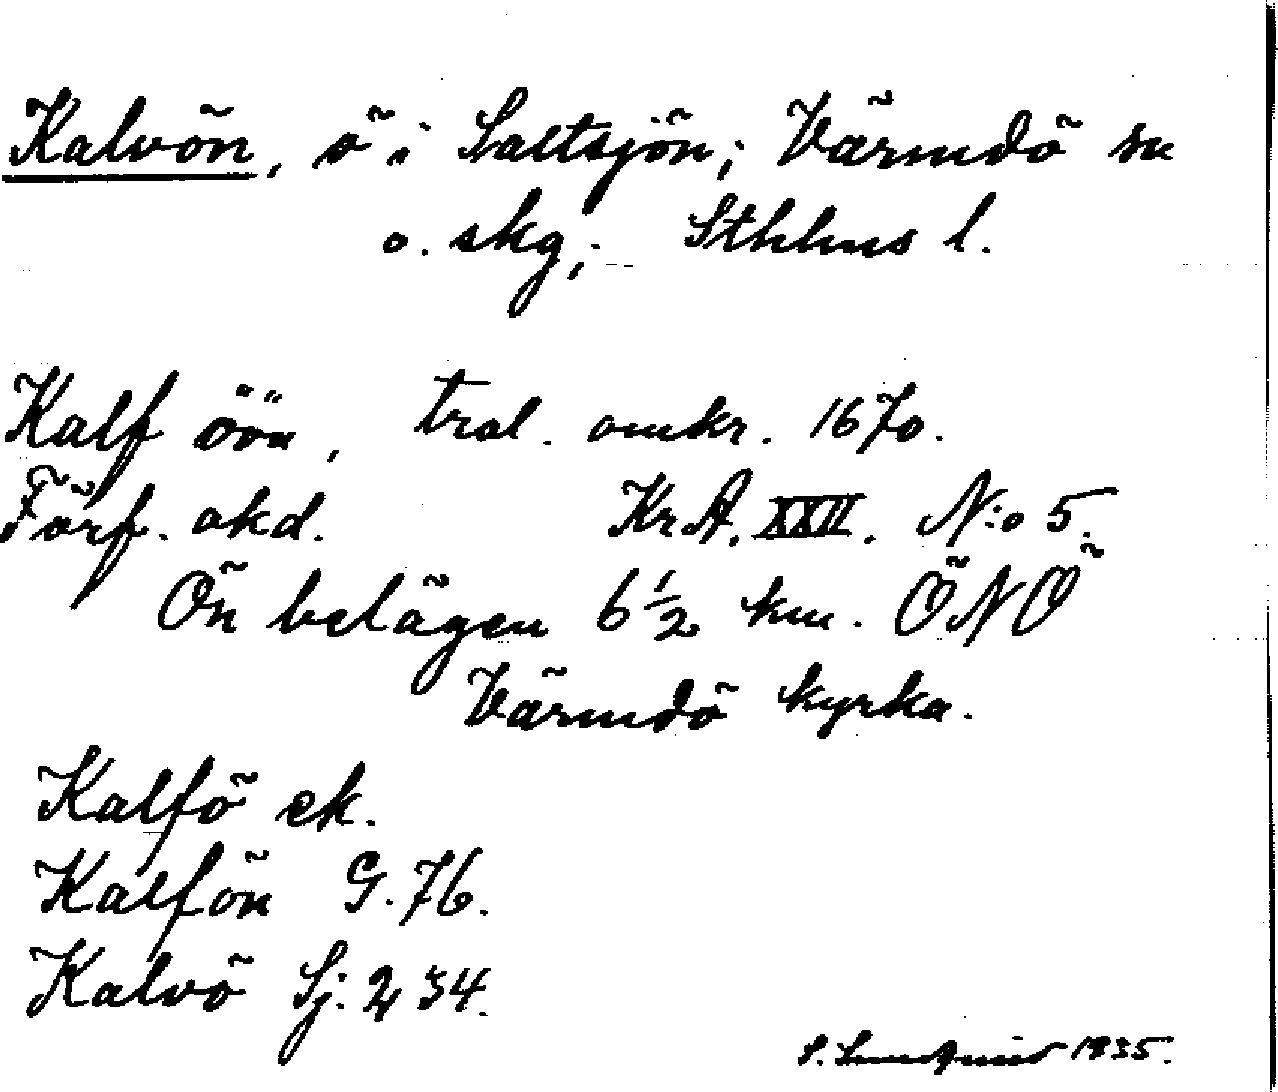 Kalvön, ö i Saltsjön; Värmdö sn
o. skg; Sthlms l.
Kalf öön, tral. omkr. 1670.
Förf. okd. Kr.A. XXII. N:o 5.
Ön belägen 6 1/2 km. ÖNÖ
Värmdö kyrka.
Kalfö ek.
Kalfön G. 76.
Kalvö Sj. 2, 34.
S. 1935.